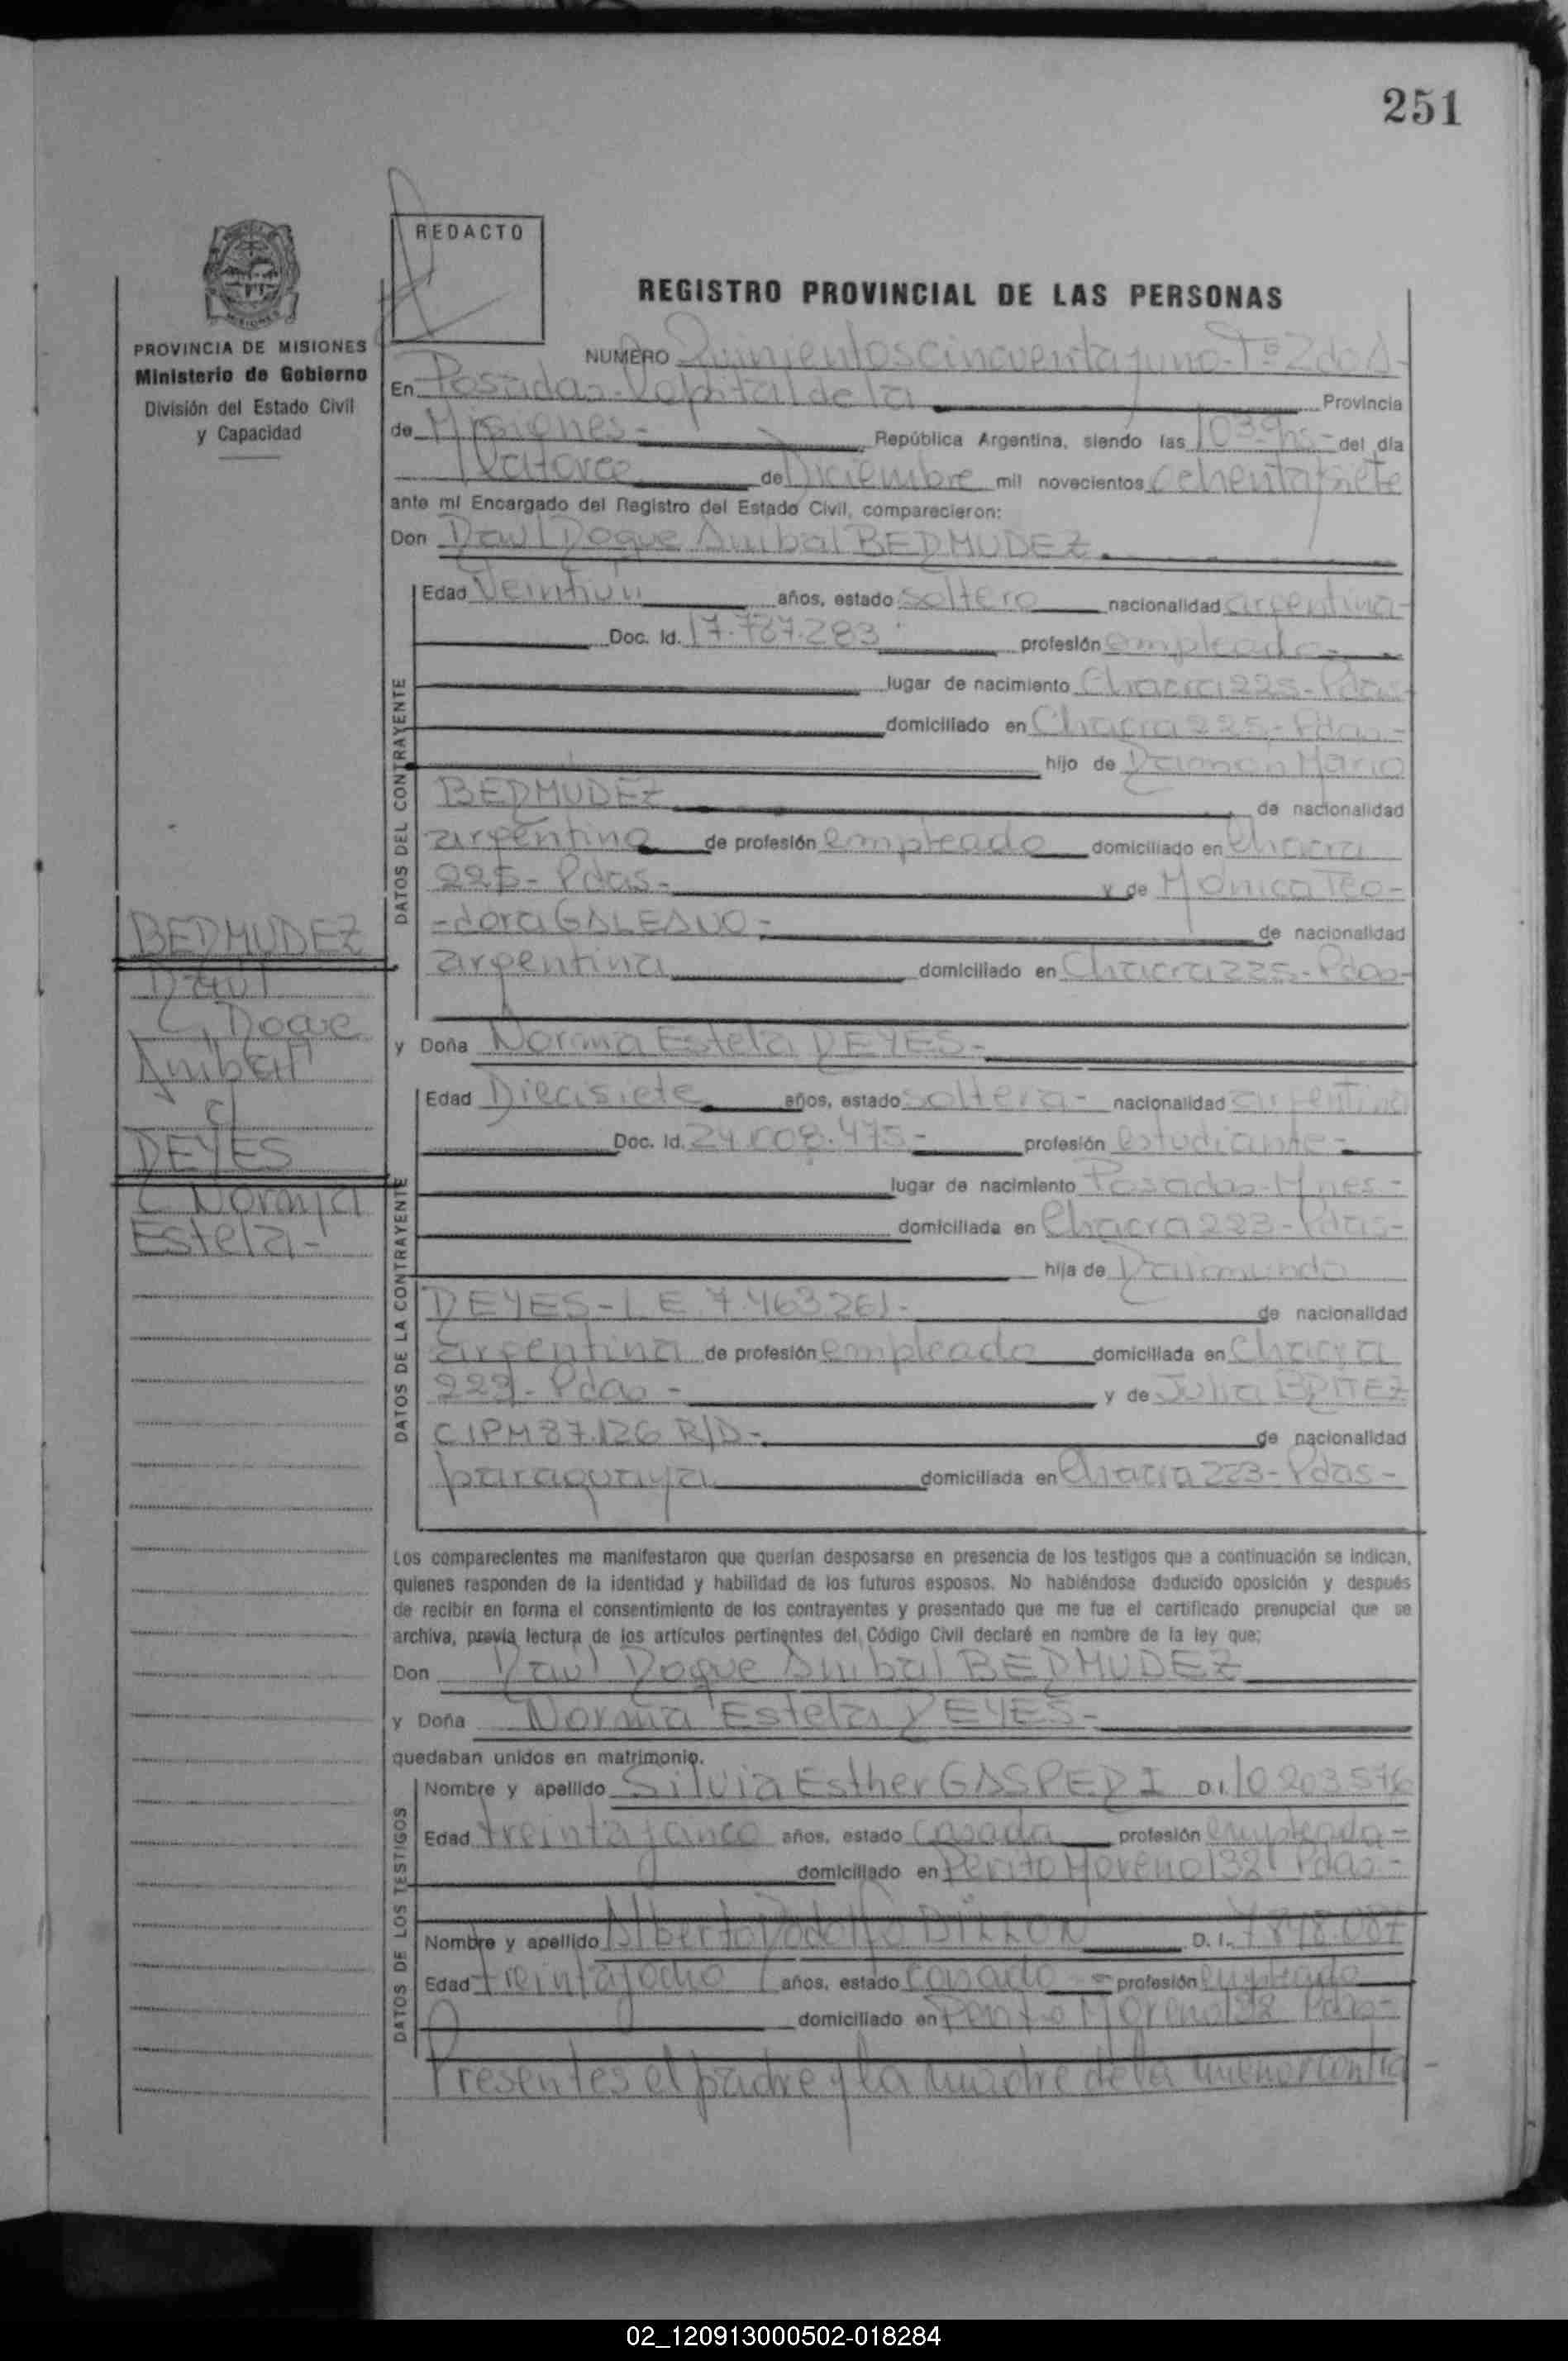 251
REDACTO
REGISTRO PROVINCIAL DE LAS PERSONAS
PROVINCIA DE MISIONES
Ministerio de Gobierno
División del Estado Civil
y Capacidad
NUMERO Quinientos cincuenta y uno - Tº 2do A-
En Posadas - Capital de la Provincia
de Misiones - República Argentina, siendo las 1030 hs - del día
Catorce de Diciembre mil novecientos ochenta y siete
ante mí Encargado del Registro del Estado Civil, comparecieron:
Don Raul Roque Anibal BERMUDEZ
DATOS DEL CONTRAYENTE
Edad Veintiún años, estado soltero nacionalidad argentina-
Doc. Id. 17.787.283 profesión empleado-
lugar de nacimiento Chacra 225 - Pdas-
domiciliado en Chacra 225 - Pdas -
hijo de Ramon Mario
BERMUDEZ de nacionalidad
argentina de profesión empleado domiciliado en Chacra
225 - Pdas - y de Mónica Teo-
-dora GALEANO - de nacionalidad
argentina domiciliado en Chacra 225 - Pdas-
BERMUDEZ
Raul
Roque
Anibal
c/
REYES
Norma
Estela -
y Doña Norma Estela REYES -
DATOS DE LA CONTRAYENTE
Edad Diecisiete años, estado soltera - nacionalidad argentina
Doc. Id. 24.008.475 - profesión estudiante -
lugar de nacimiento Posadas - Mnes -
domiciliada en Chacra 223 - Pdas -
hija de Raimundo
REYES - L E. 7.463261 - de nacionalidad
argentina de profesión empleado domiciliada en Chacra
223 - Pdas - y de Julia BRITEZ
CIPM 87.126 R/D - de nacionalidad
paraguaya domiciliada en Chacra 223 - Pdas -
Los comparecientes me manifestaron que querían desposarse en presencia de los testigos que a continuación se indican,
quienes responden de la identidad y habilidad de los futuros esposos. No habiéndose deducido oposición y después
de recibir en forma el consentimiento de los contrayentes y presentado que me fue el certificado prenupcial que se
archiva, previa lectura de los artículos pertinentes del Código Civil declaré en nombre de la ley que:
Don Raul Roque Anibal BERMUDEZ
y Doña Norma Estela REYES -
quedaban unidos en matrimonio.
DATOS DE LOS TESTIGOS
Nombre y apellido Silvia Esther GASPERI D.I. 10.203.576
Edad treinta y cinco años, estado casada profesión empleada -
domiciliado en Perito Moreno 132 Pdas -
Nombre y apellido Alberto Rodolfo D. I. 7.848.087
Edad treinta y ocho años, estado casado - profesión empleado
domiciliado en Perito Moreno 132 Pdas -
Presentes el padre y la madre de la menor contra-
02_120913000502-018284